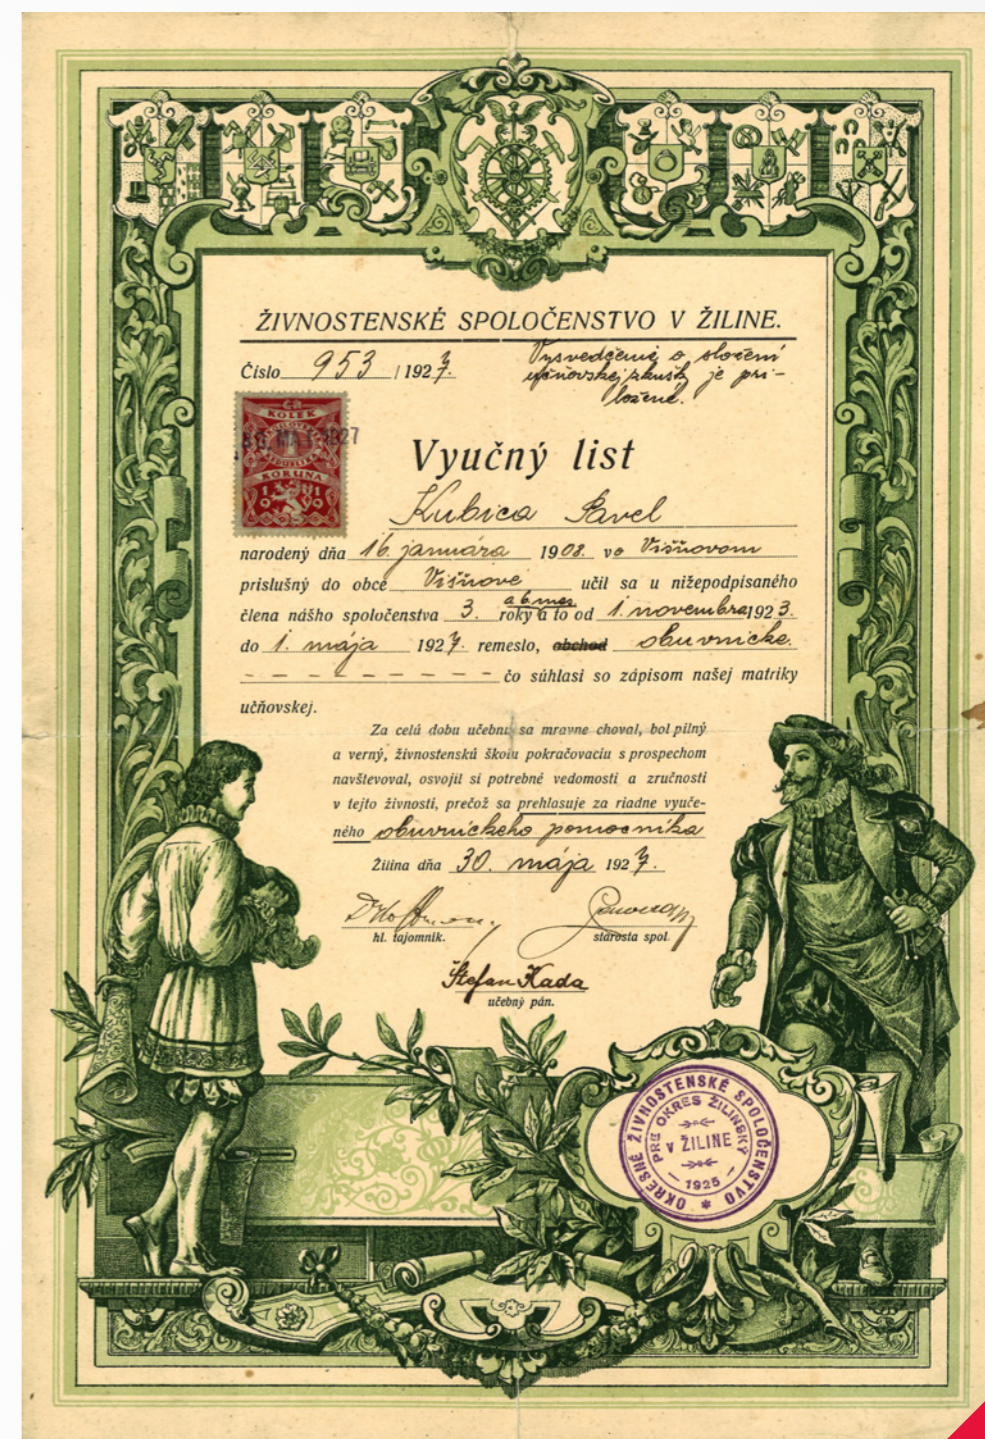 ŽIVNOSTENSKÉ SPOLOČENSTVO V ŽILINE.
Číslo 953 / 1927.
Vysvedčenie o složení
učňovskej zkušky je pri-
ložené.
KOLEK
KORUNA
1919
30. MAI 1927
Vyučný list
Kubica Pavel
narodený dňa 16. januára 1908. vo Višňovom
príslušný do obce Višňové učil sa u nižepodpísaného
a 6 mes.
člena nášho spoločenstva 3. roky a to od 1. novembra 1923.
do 1. mája 1927. remeslo, obchod obuvnícke.
– – – – – – – – – čo súhlasi so zápisom našej matriky
učňovskej.
Za celú dobu učebnú sa mravne choval, bol pilný
a verný, živnostenskú školu pokračovaciu s prospechom
navštevoval, osvojil si potrebné vedomosti a zručnosti
v tejto živnosti, prečož sa prehlasuje za riadne vyuče-
ného obuvníckeho pomocníka
Žilina dňa 30. mája 1927.
hl. tajomník.
starosta spol.
Štefan Kada
učebný pán.
OKRESNÉ ŽIVNOSTENSKÉ SPOLOČENSTVO
PRE OKRES ŽILINSKÝ
V ŽILINE
1925